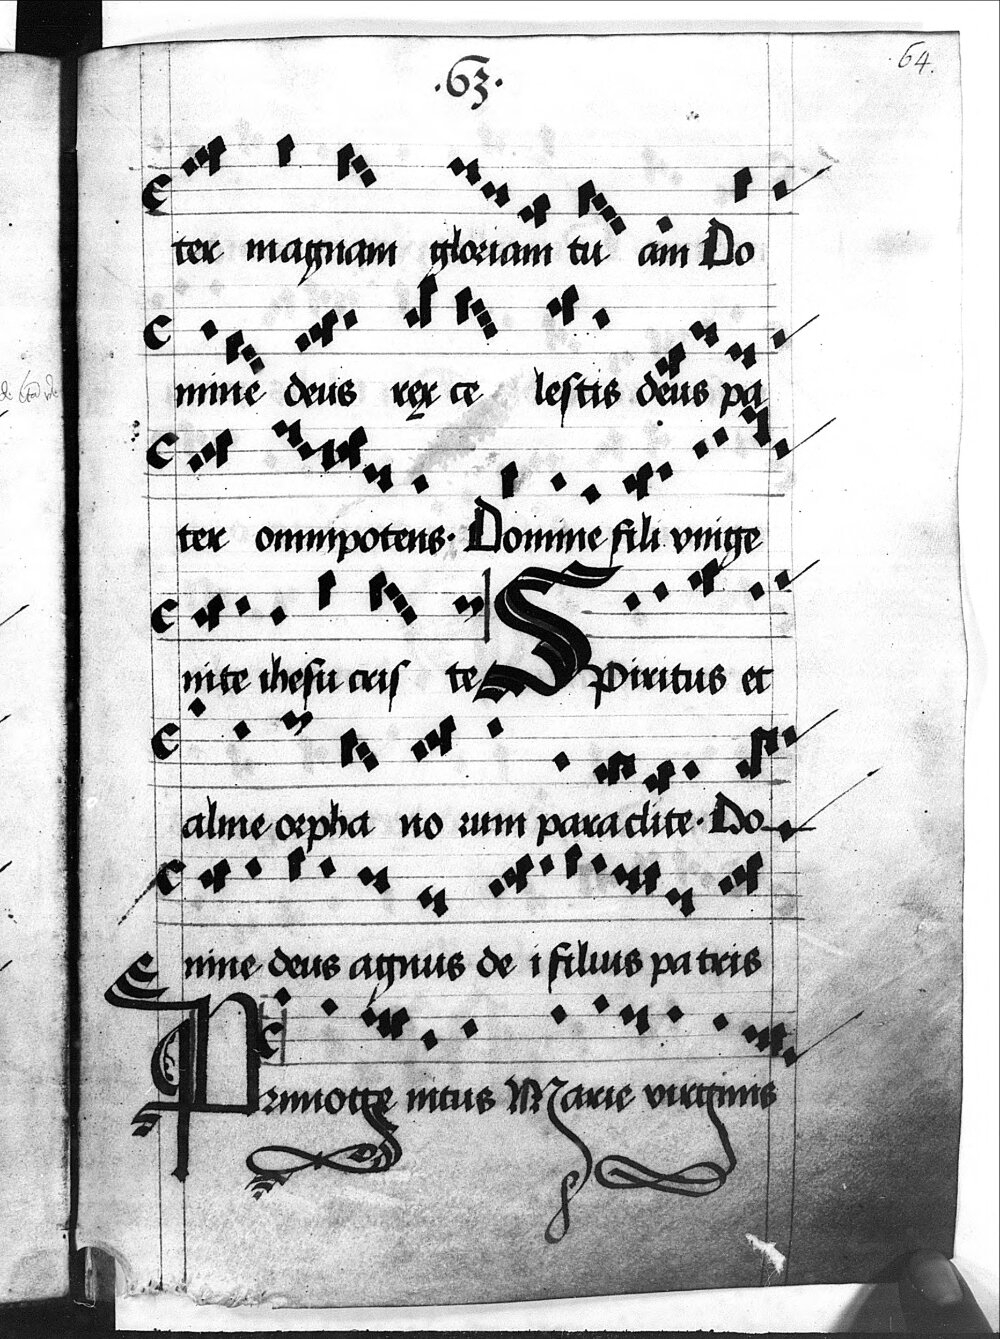 64.
.63.
ter magnam gloriam tu am Do
mine deus rex ce lestis deus pa
ter omnipotens. Domine fili vnige
nite ihesu cris te Spiritus et
alme orpha no rum paraclite. Do
mine deus agnus de i filius patris
Primogenitus Marie virginis